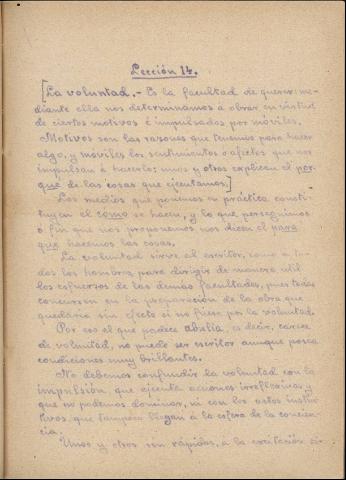 Lección 14.
[La voluntad.- Es la facultad de querer: me-
diante ella nos determinamos á obrar en virtud
de ciertos motivos é impulsados por móviles.
Motivos son las razones que tenemos para hacer
algo, y móviles los sentimientos o afectos que nos
impulsan á hacerlo; unos y otros explican el por-
que de las cosas que ejecutamos.]
Los medios que ponemos en práctica consti-
tuyen el como se hacen, y lo que perseguimos
ó fin que nos proponemos nos dicen el para
que hacemos las cosas.
La voluntad sirve al escritor, como a to-
dos los hombres, para dirigir de manera util
los esfuerzos de las demás facultades, pues todas
concurren en la preparación de la obra que
quedaria sin efecto si no fuese por la voluntad.
Por eso el que padece abulia, es decir, carece
de voluntad, no puede ser escritor aunque posea
condiciones muy brillantes.
No debemos confundir la voluntad con la
impulsión, que ejecuta acciones irreflexivas y
que no podemos dominar, ni con los actos instin-
tivos, que tampoco llegan á la esfera de la concien-
cia.
Unos y otros son rápidos, á la excitación si-